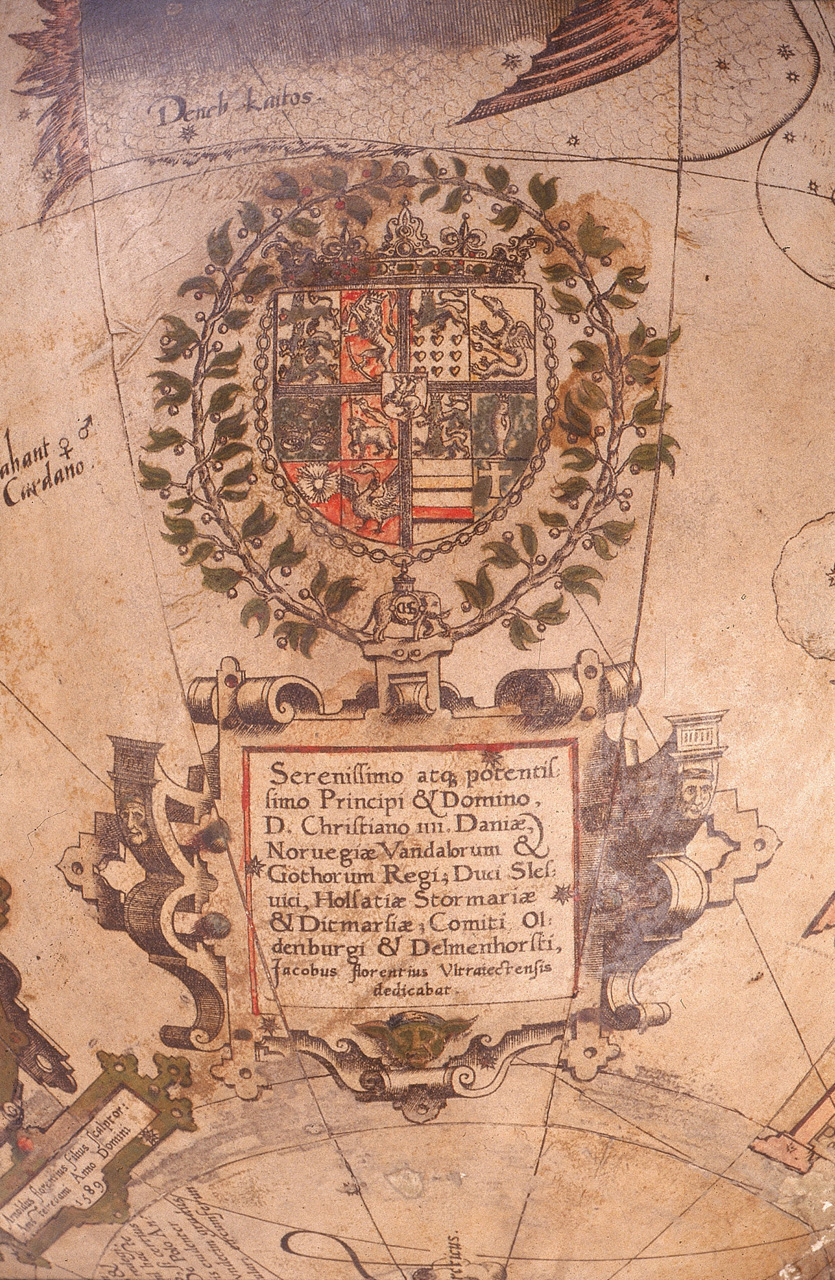 Deneb kaitos.
ahant ♀ ♂
Cardano.
Serenissimo atq; potentis:
simo Principi & Domino,
D. Christiano IIII. Daniæ,
Noruegiæ Vandalorum &
Gothorum Regi; Duci Sles:
uici, Holsatiæ Stormariæ
& Ditmarsiæ; Comiti Ol:
denburgi & Delmenhorsti,
Jacobus florentius Vltraiectensis
dedicabat.
Arnoldus florentius filius sculpsor:
Anno Domini
1589